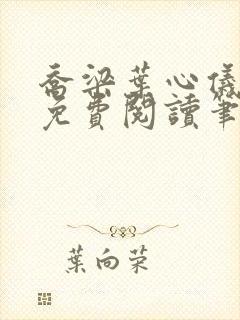 喬梁葉心儀
免費閱讀筆
葉向榮